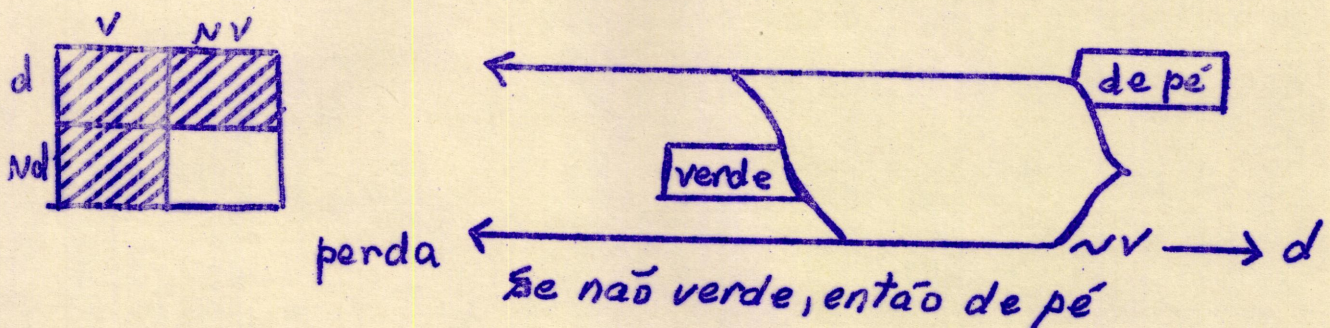 V NV
d
Nd
de pé
verde
perda
NV → d
Se não verde, então de pé